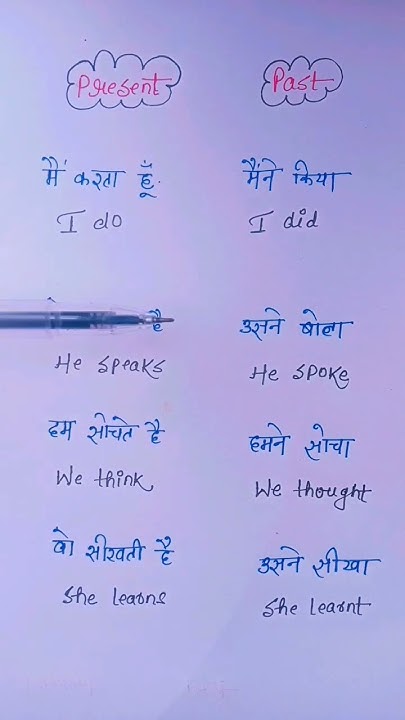 Present
Past
मैं करता हूँ.
मैंने किया
I do
I did
है
उसने बोला
He speaks
He spoke
हम सोचते है
हमने सोचा
We think
We thought
वो सीखती है
उसने सीखा
She learns
She learnt